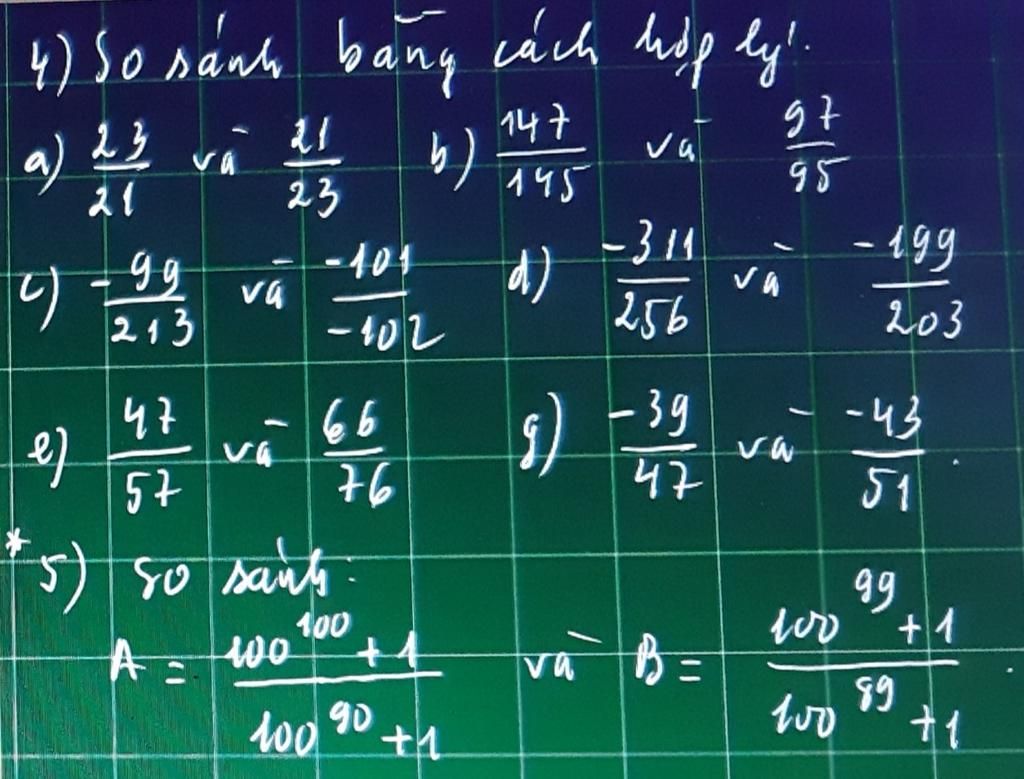 4) So sánh bằng cách hợp lý.
a) 23/21 và 21/23 b) 147/145 và 97/95
c) -99/213 và -101/-102 d) -311/256 và -199/203
e) 47/57 và 66/76 g) -39/47 và -43/51.
* 5) So sánh:
A = 100^100 + 1 / 100^90 + 1 và B = 100^99 + 1 / 100^89 + 1.